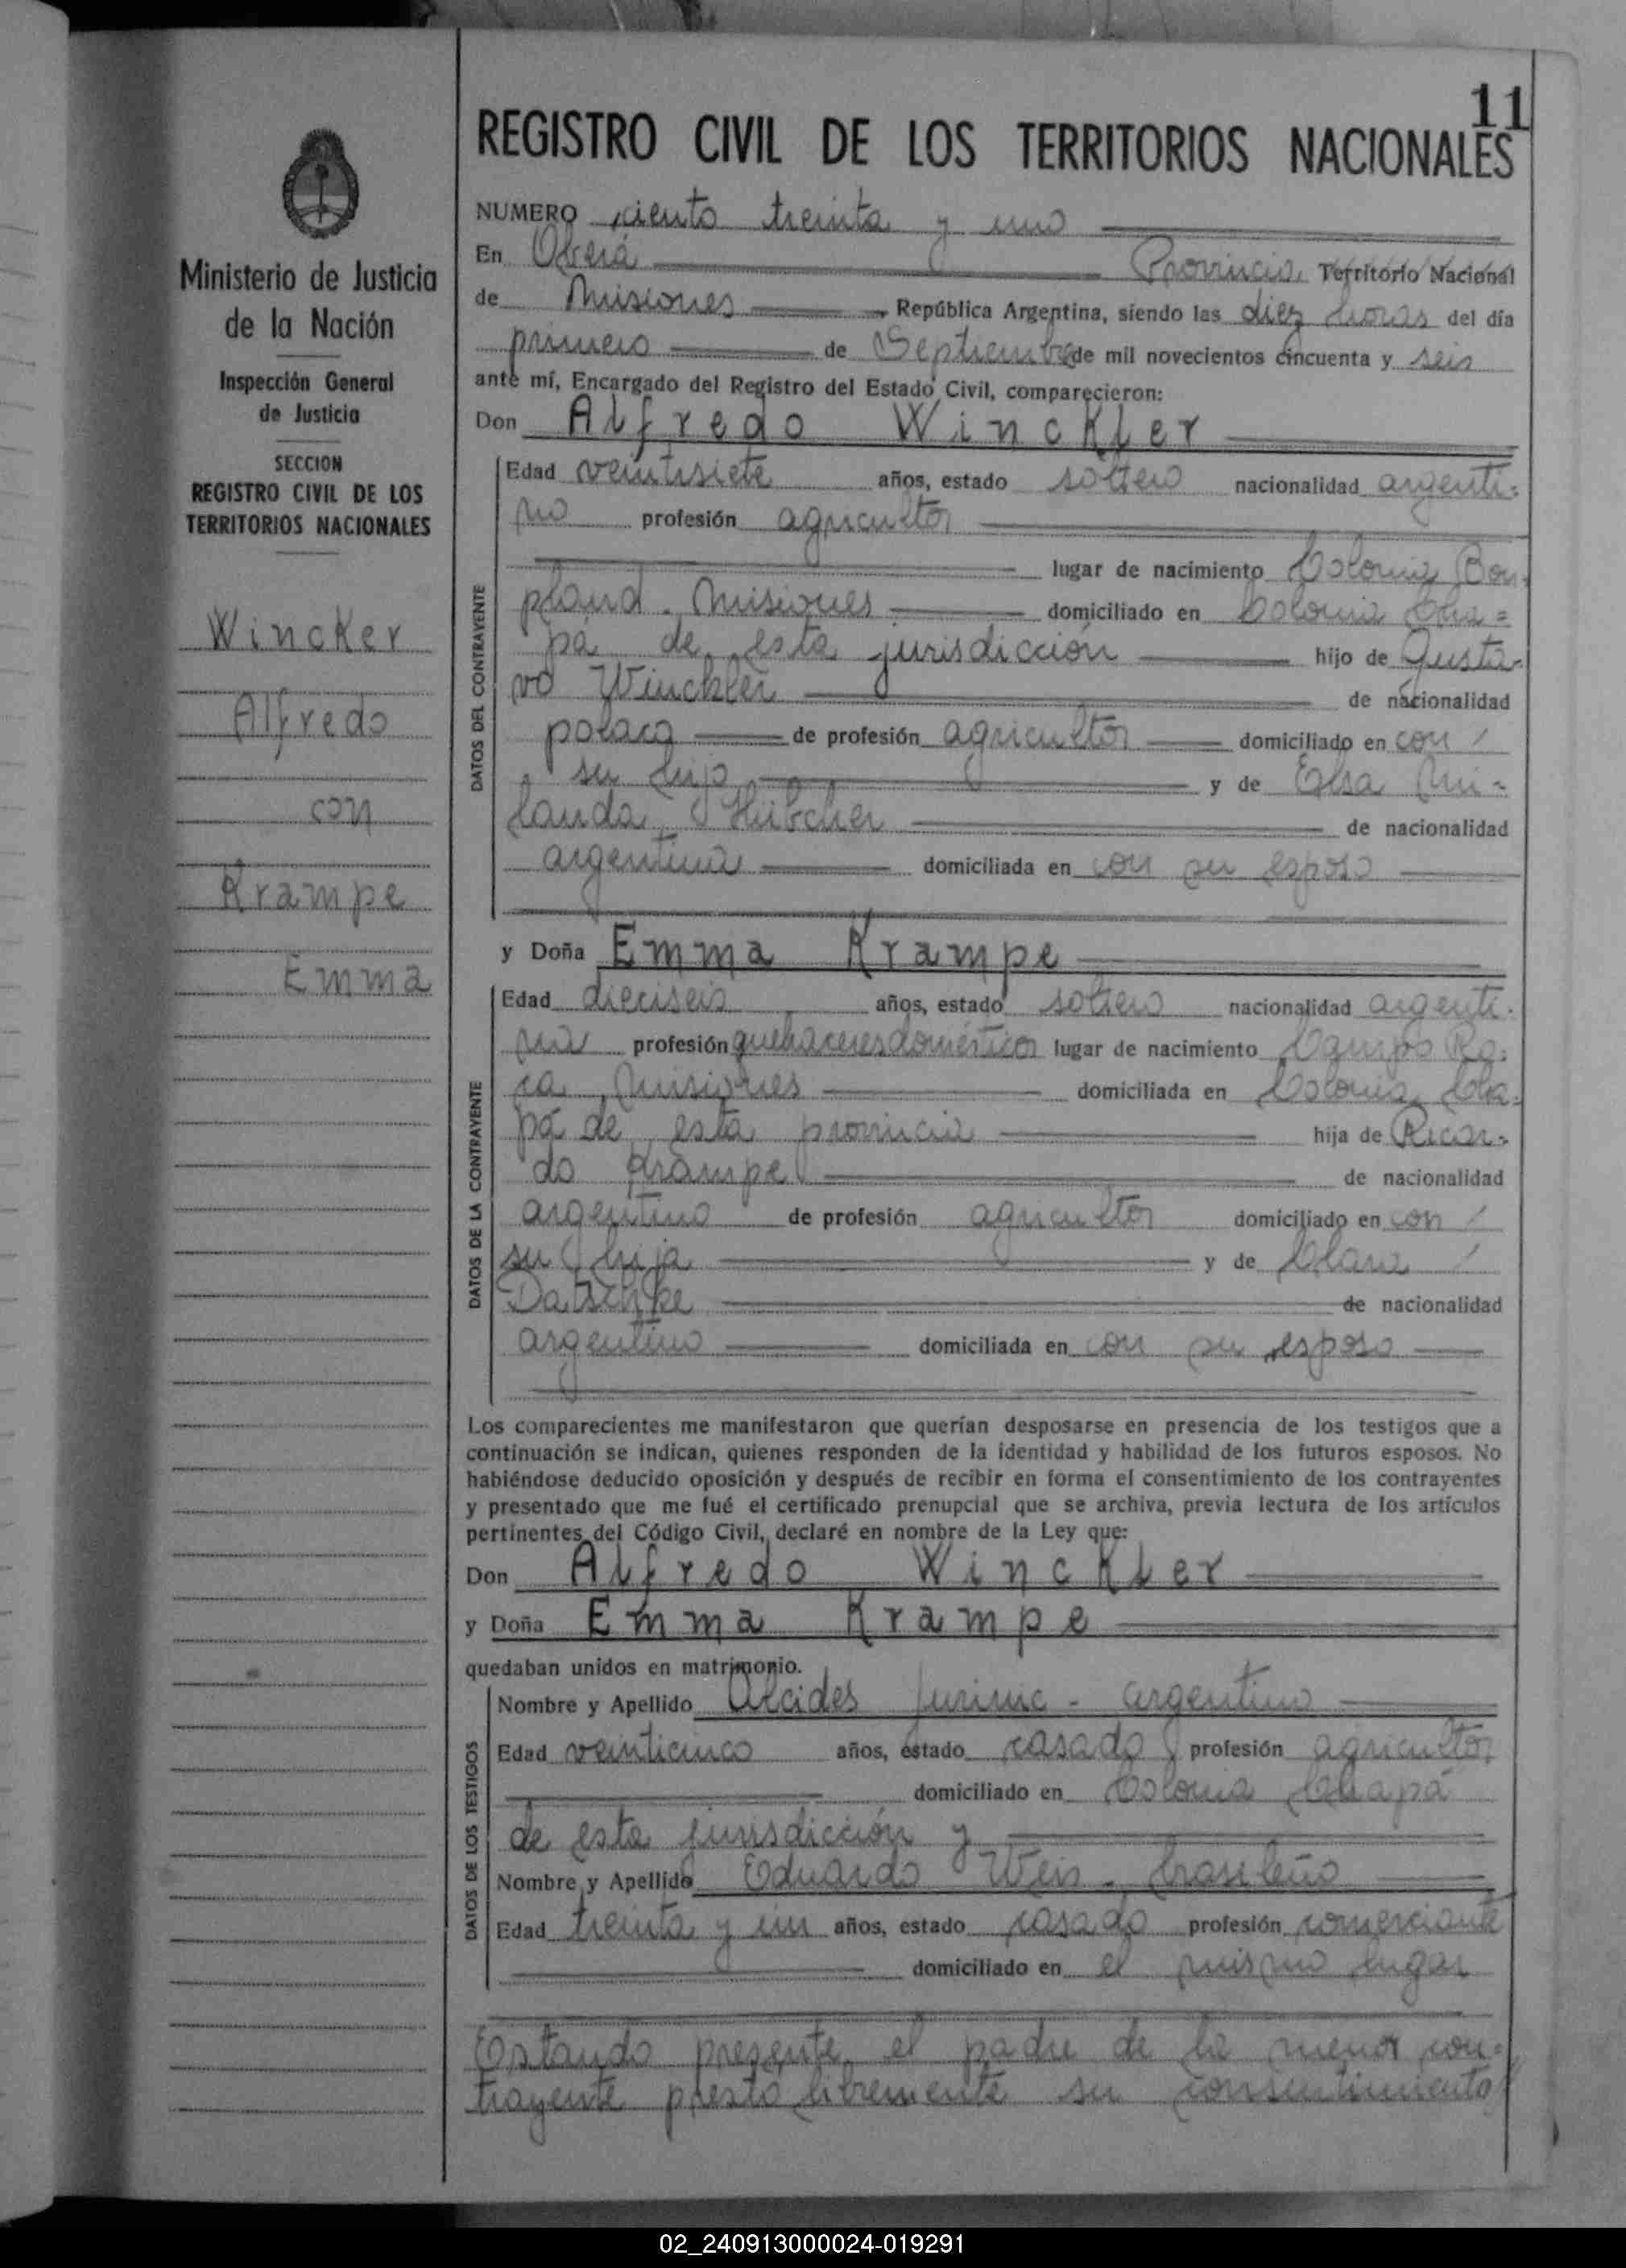 11
REGISTRO CIVIL DE LOS TERRITORIOS NACIONALES
Ministerio de Justicia
de la Nación
Inspección General
de Justicia
SECCION
REGISTRO CIVIL DE LOS
TERRITORIOS NACIONALES
Wincker
Alfredo
con
Krampe
Emma
NUMERO ciento treinta y uno
En Oberá Provincia Territorio Nacional
de Misiones, República Argentina, siendo las diez horas del día
primero de Septiembre de mil novecientos cincuenta y seis
ante mí, Encargado del Registro del Estado Civil, comparecieron:
Don Alfredo Winckler
DATOS DEL CONTRAYENTE
Edad veintisiete años, estado soltero nacionalidad argenti-
no profesión agricultor
lugar de nacimiento Colonia Bon-
pland - Misiones domiciliado en Colonia Cha=
pá de esta jurisdicción hijo de Gusta-
vo Winckler de nacionalidad
polaca de profesión agricultor domiciliado en con
su hijo y de Elsa
de nacionalidad
argentina domiciliada en con su esposo
y Doña Emma Krampe
DATOS DE LA CONTRAYENTE
Edad dieciseis años, estado soltero nacionalidad argenti-
na profesión quehaceres domésticos lugar de nacimiento Campo Ro-
ca, Misiones domiciliada en Colonia Cha-
pá de esta provincia hija de Ricar-
do Krampe de nacionalidad
argentino de profesión agricultor domiciliado en con
su hija y de Clara
Datschke de nacionalidad
argentino domiciliada en con su esposo
Los comparecientes me manifestaron que querían desposarse en presencia de los testigos que a
continuación se indican, quienes responden de la identidad y habilidad de los futuros esposos. No
habiéndose deducido oposición y después de recibir en forma el consentimiento de los contrayentes
y presentado que me fué el certificado prenupcial que se archiva, previa lectura de los artículos
pertinentes del Código Civil, declaré en nombre de la Ley que:
Don Alfredo Winckler
y Doña Emma Krampe
quedaban unidos en matrimonio.
DATOS DE LOS TESTIGOS
Nombre y Apellido Alcides - argentino
Edad veinticinco años, estado casado profesión agricultor
domiciliado en Colonia Chapá
de esta jurisdicción y
Nombre y Apellido Eduardo Weis - brasileño
Edad treinta y un años, estado casado profesión comerciante
domiciliado en el mismo lugar
Estando presente el padre de la menor con-
trayente prestó libremente su consentimiento
02_240913000024-019291